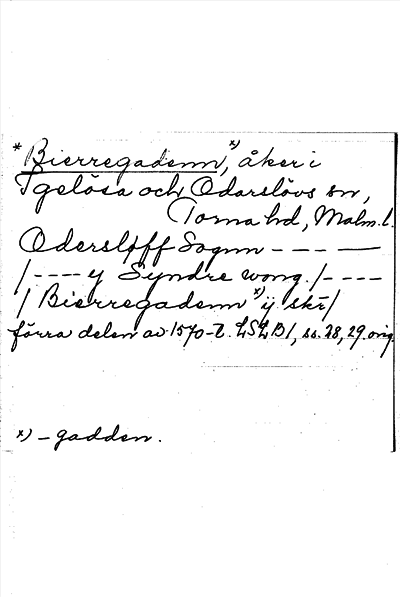 * Bierregadenn, x) åker i
Igelösa och Odarslövs sn,
Torna hd, Malm. l.
Odersløff Sognn - - - - -
/ - - - - y Syndre wong. / - - - -
/ Bierregadenn x) ij skr/
förra delen av 1570-t. LSLB1, ss. 28, 29 orig.
x) - gadden.